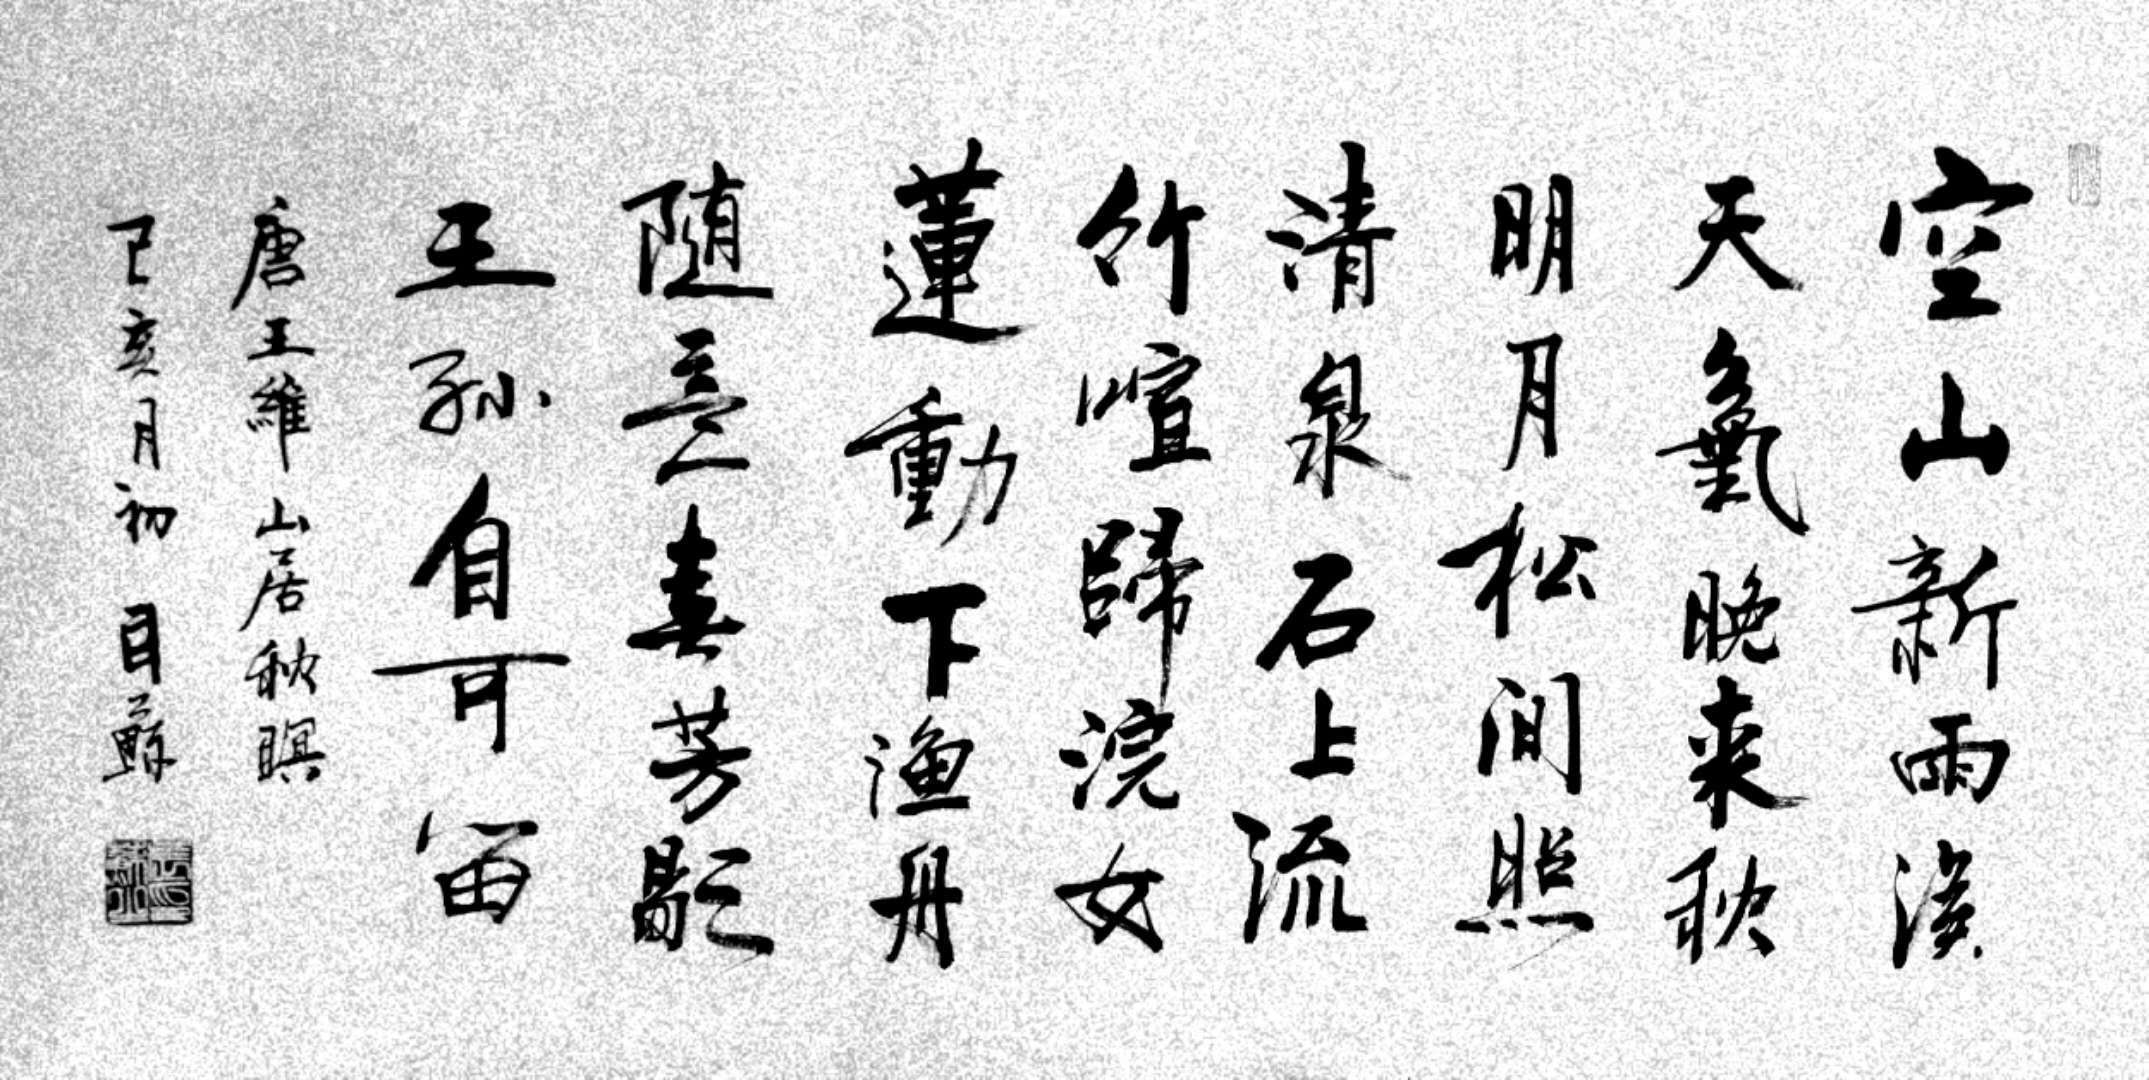 空山新雨後
天氣晚來秋
明月松間照
清泉石上流
竹喧歸浣女
蓮動下渔舟
随意春芳歇
王孫自可留
唐王維山居秋暝
己亥月初 自蘇